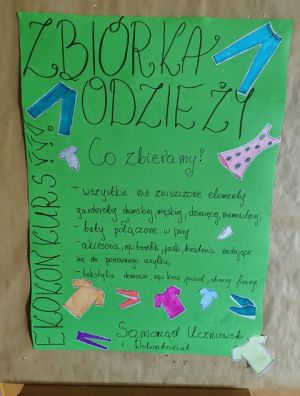 ZBIÓRKA
ODZIEŻY
EKOKONKURS!!!
Co zbieramy?
- wszystkie nie zniszczone elementy
garderoby damskiej, męskiej, dziecięcej, niemowlęcej
- buty połączone w pary
- akcesoria, np. torebki, paski, biżuteria nadające
się do ponownego użytku
- tekstylia domowe, np. koce, pościel, obrusy, firany
Samorząd Uczniowski
i Wolontariat